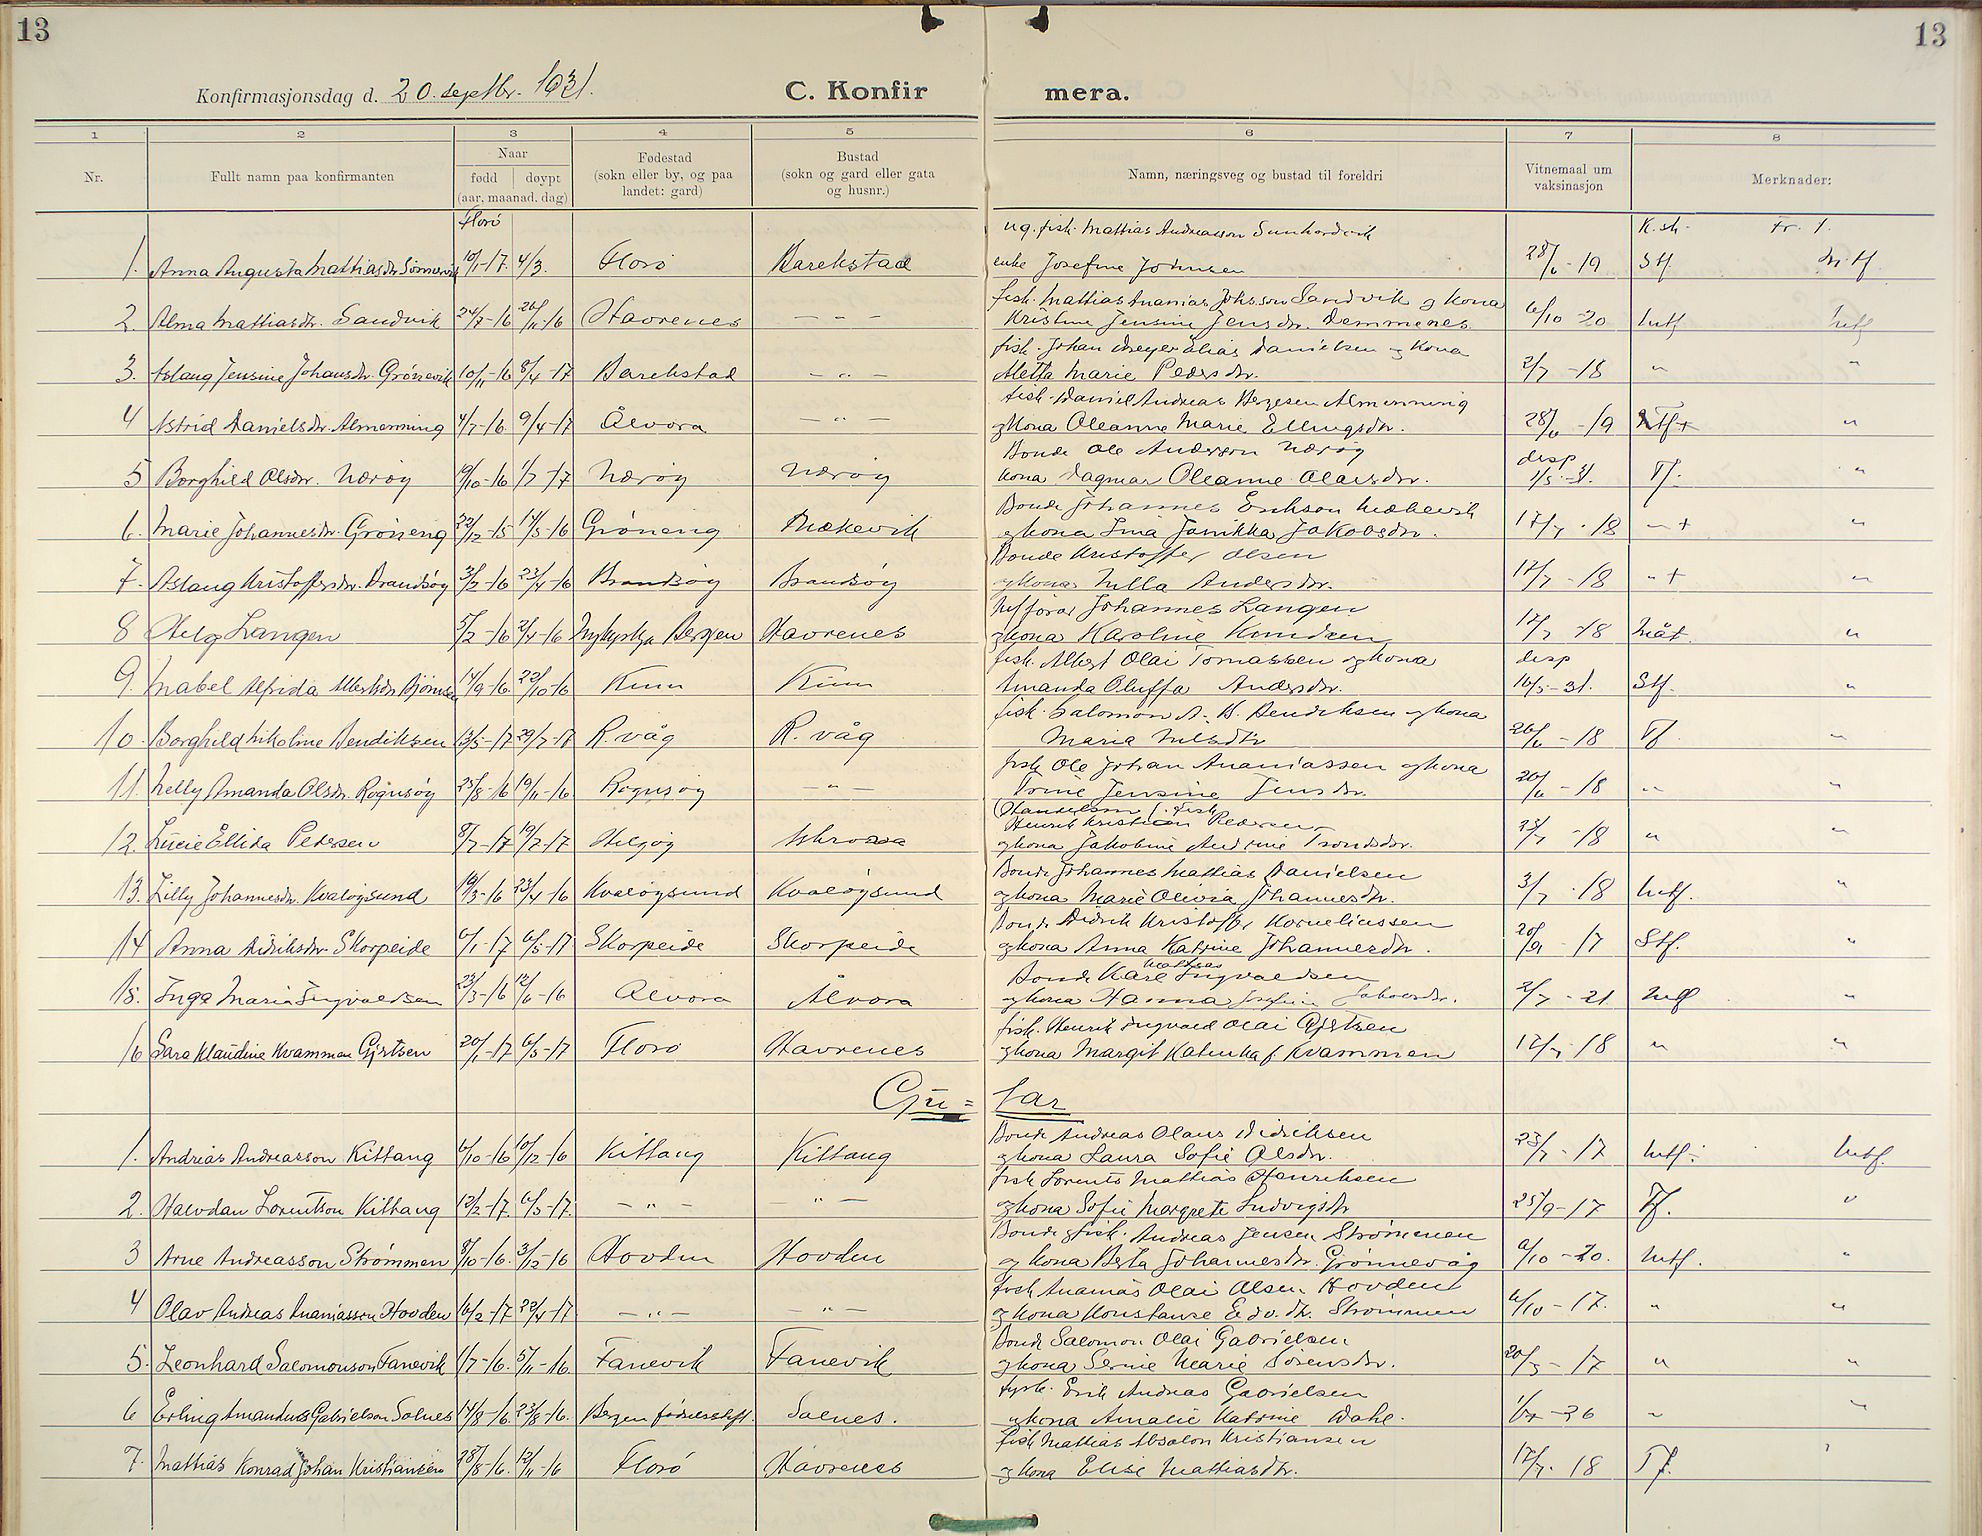 13
13
Konfirmasjonsdag d. 20. septbr. 1931.
C. Konfir
mera.
1 2 3 4 5 6 7 8
Nr.
Fullt namn paa konfirmanten
Naar
fødd døypt
(aar, maanad, dag)
Fødestad
(sokn eller by, og paa
landet: gard)
Bustad
(sokn og gard eller gata
og husnr.)
Namn, næringsveg og bustad til foreldri
Vitnemaal um
vaksinasjon
Merknader:
Florø
ug. fisk. Mattias Andreasson
K.sk. Fr. 1.
1. Anna Augusta Mattiasdr. 10/1-17 4/3. Florø Barekstad enke Josefine Johnsen 28/6-19 Stf
fisk. Mattias Ananias Johsson Sandvik og kona
2. Alma Mattiasdr. Sandvik 24/7-16 26/11-16 Havrenes - " - Kristine Jensine Jensdr. 6/10-20 Mtf Mtf
fisk. Johan Meyer Elias Danielsen og kona
3. Aslaug Jensine Johansdr. Grønevik 10/11-16 8/4-17 Barekstad - " - Metta Marie Pedersdr. 2/7-18 " "
fisk. Daniel Andreas Bergesen Almenning
4 Astrid Danielsdr. Almenning 4/7-16. 9/4-17 Ålvora - " - og kona Oleanne Marie Ellingsdr. 28/6-19 "
Bonde Ole Anderson Nærøy
desp
5 Borghild Olsdr. Nærøy 19/10-16 1/7-17 Nærøy Nærøy kona Dagmar Oleanne Olavsdr. 1/5-31. Tf. "
Bonde Johannes Erikson
6. Marie Johannesdr. Grøneng 22/12-15 14/5-16 Grøneng og kona Ima Janikka Jakobsdr. 17/7-18 - + "
Bonde Kristoffer Olsen
7. Aslaug Kristoffersdr. Brandsøy 3/2-16 23/4-16 Brandsøy Brandsøy og kona Milla Andersdr. 17/7-18 " + "
Johannes Langen
8 Helg Langen 5/2-16 2/4-16 Nykyrkja Bergen Havrenes og kona Karoline 17/7-18 Måt. "
fisk. Albert Olai Tomassen og kona
desp
9. Mabel Alfrida Albertsdr. 14/9-16. 22/10-16 Kinn Kinn Amanda Oluffa Andersdr. 16/5-31. Stf. "
fisk. Salomon A. B. Bendiksen og kona
10. Borghild Nikoline Bendiksen 13/5-17 29/7-17 R. våg R. våg Maria Nilsdtr 26/6-18 Tf "
fisk Ole Johan Ananiassen og kona
11. Nelly Amanda Olsdr. Rognsøy 25/8-16 19/11-16 Rognsøy - " - Trine Jensine Jensdr. 20/6-18 " "
Henrik Kristian Pedersen
12. Lucie Ellida Pedersen 8/7-17 19/7-17 Helgøy og kona Jakobine Trondsdr. 25/7-18 " "
Bonde Johannes Mattias Danielsen
13. Lilly Johannesdr. Kvaløysund 19/3-16 23/4-16 Kvaløysund Kvaløysund og kona Marie Olivia Johannesdr. 3/7-18 Mtf. "
Bonde Didrik Kristoffer Korneliussen
14 Anna Didriksdr. Skorpeide 6/1-17 6/5-17 Skorpeide Skorpeide og kona Anna Katrine Johannesdr. 20/9-17 Stf. "
Bonde Karl Mattias Ingvaldsen
15. Inga Maria Ingvaldsen 23/3-16 12/6-16 Ålvora Ålvora og kona Hanna Josefine Jakobsdr. 2/7-21 Mtf "
fisk. Henrik Ingvald Olai Gjertsen
16 Sara Klaudine Kvammen Gjertsen 20/1-17 6/5-17 Florø Havrenes og kona Margit Katinka f. Kvammen 17/7-18 " "
Gu= tar
Bonde Andreas Olaus Didriksen
1. Andrias Andreasson Kittang 6/10-16 10/12-16 Kittang Kittang og kona Laura Sofie Olsdr. 23/7-17 Mtf. Mtf.
fisk Lorents Mattias Henriksen
2. Halvdan Lorentson Kittang 12/2-17. 6/5-17. - " - - " - og kona Sofie Margrete Ludvigsdr 25/9-17 Tf. "
Bonde og fisk. Andreas Jensen Strømmen
3 Arne Andreasson Strømmen 8/10-16. 3/12-16 Hovden Hovden og kona Berta Johannesdr. Grønnevåg 6/10-20. Mtf. "
fisk Ananias Olai Olsen Hovden
4 Olav Andreas Ananiassen Hovden 16/2-17 22/4-17 - " - - " - og kona Konstanse Edv.dr. Strømmen 6/10-17. " "
Bonde Salomon Olai Gabrielsen
5. Leonhard Salomonson Fanevik 1/7-16. 5/11-16. Fanevik Fanevik og kona Serine Marie Sørensdr. 20/5-17 " "
fyrb. Erik Andreas Gabrielsen
6 Erling Amandus Gabrielson Solnes 14/8-16. 23/8-16. Bergen fødselsstift. Solnes. og kona Amalie Katrine Dahl. " "
fisk Mattias Absalon Kristiansen
7. Mattias Konrad Johan Kristiansen 28/8-16. 12/11-16 Florø Havrenes og kona Elise Mattiasdtr. 17/7-18 Tf. "